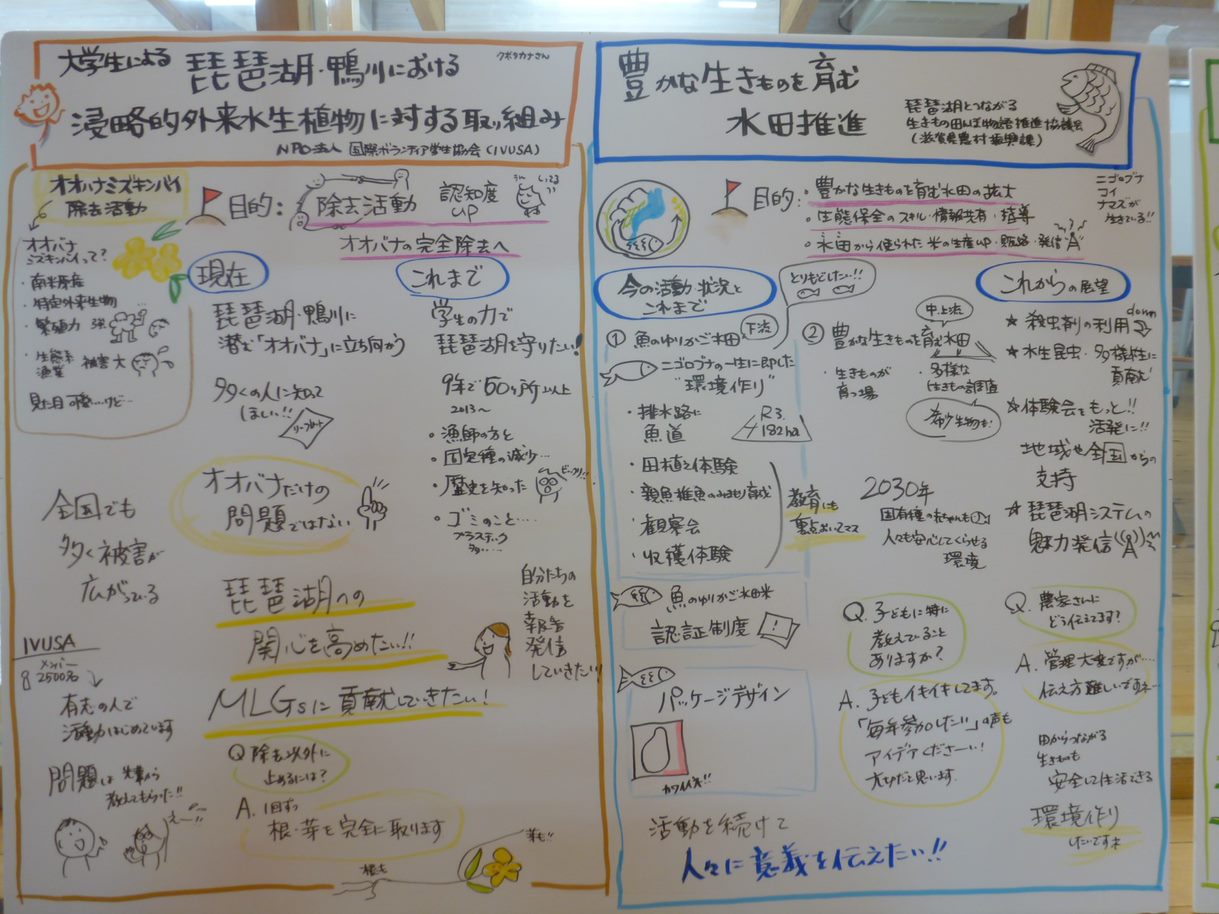 大学生による 琵琶湖・鴨川における
クボタカナさん
浸略的外来水生植物に対する取り組み
NPO法人 国際ボランティア学生協会(IVUSA)
オオバナミズキンバイ
除去活動
目的: 除去活動 認知度UP
オオバナの完全除去へ
オオバナ
ミズキンバイって?
・南米原産
・特定外来生物
・繁殖力 強
・生態系
漁業 被害大
見た目可愛…けど…
現在
琵琶湖・鴨川に
潜む「オオバナ」に立ち向かう
多くの人に知って
ほしい!!
リーフレット
これまで
学生の力で
琵琶湖を守りたい!
9年で60ヶ所以上
2013〜
・漁師の方と
・固定種の減少…
・歴史を知った
ビックリ!!
・ゴミのこと…
プラスティック
多…
オオバナだけの
問題ではない
全国でも
多く被害が
広がっている
琵琶湖への
関心を高めたい!!
MLGsに貢献していきたい!
自分たちの
活動を
報告
発信
していきたい!
IVUSA
メンバー
2500名
有志の人で
活動はじめています
問題は 先輩から
教えてもらった!!
え〜!!
Q 除去以外に
止めるには?
A. 1回ずつ
根・芽を完全に取ります
根も
芽も!!
豊かな生きものを育む
水田推進
琵琶湖とつながる
生きもの田んぼ物語推進協議会
(滋賀県農村振興課)
目的: ・豊かな生きものを育む水田の拡大
・生態保全のスキル・情報共有・指導
・水田から作られた米の生産UP・販路・発信
ニゴロブナ
コイ
ナマズが
生きている!!
今の活動状況と
これまで
とりもどしたい!!
① 魚のゆりかご水田
下流
ニゴロブナの一生に即した
"環境作り"
・排水路に
魚道
R3.
182ha
・田植え体験
・親魚稚魚のみまもり育成
・観察会
・収穫体験
教育にも
重点おいてマス
魚のゆりかご水田米
認証制度
パッケージデザイン
カワイイ!!
② 豊かな生きものを育む水田
中上流
・生きものが
育つ場
・多様な
生きもの調査
希少生物も!
2030年
固有種の赤ちゃんも
人々も安心してくらせる
環境
これからの展望
★ 殺虫剤の利用 down
★ 水生昆虫・多様性に
貢献心
★ 体験会をもっと!!
活発に!!
地域や全国からの
支持
★ 琵琶湖システムの
魅力発信
Q. 子どもに特に
教えていること
ありますか?
A. 子どもイキイキしてます。
「毎年参加したい」の声も
アイデアくださーい!
大切だと思います
Q. 農家さんに
どう伝えてます?
A. 管理大変ですが…
伝え方難しいですネ…
田からつながる
生きものも
安全して生活できる
環境作り
したいですネ
活動を続けて
人々に意義を伝えたい!!